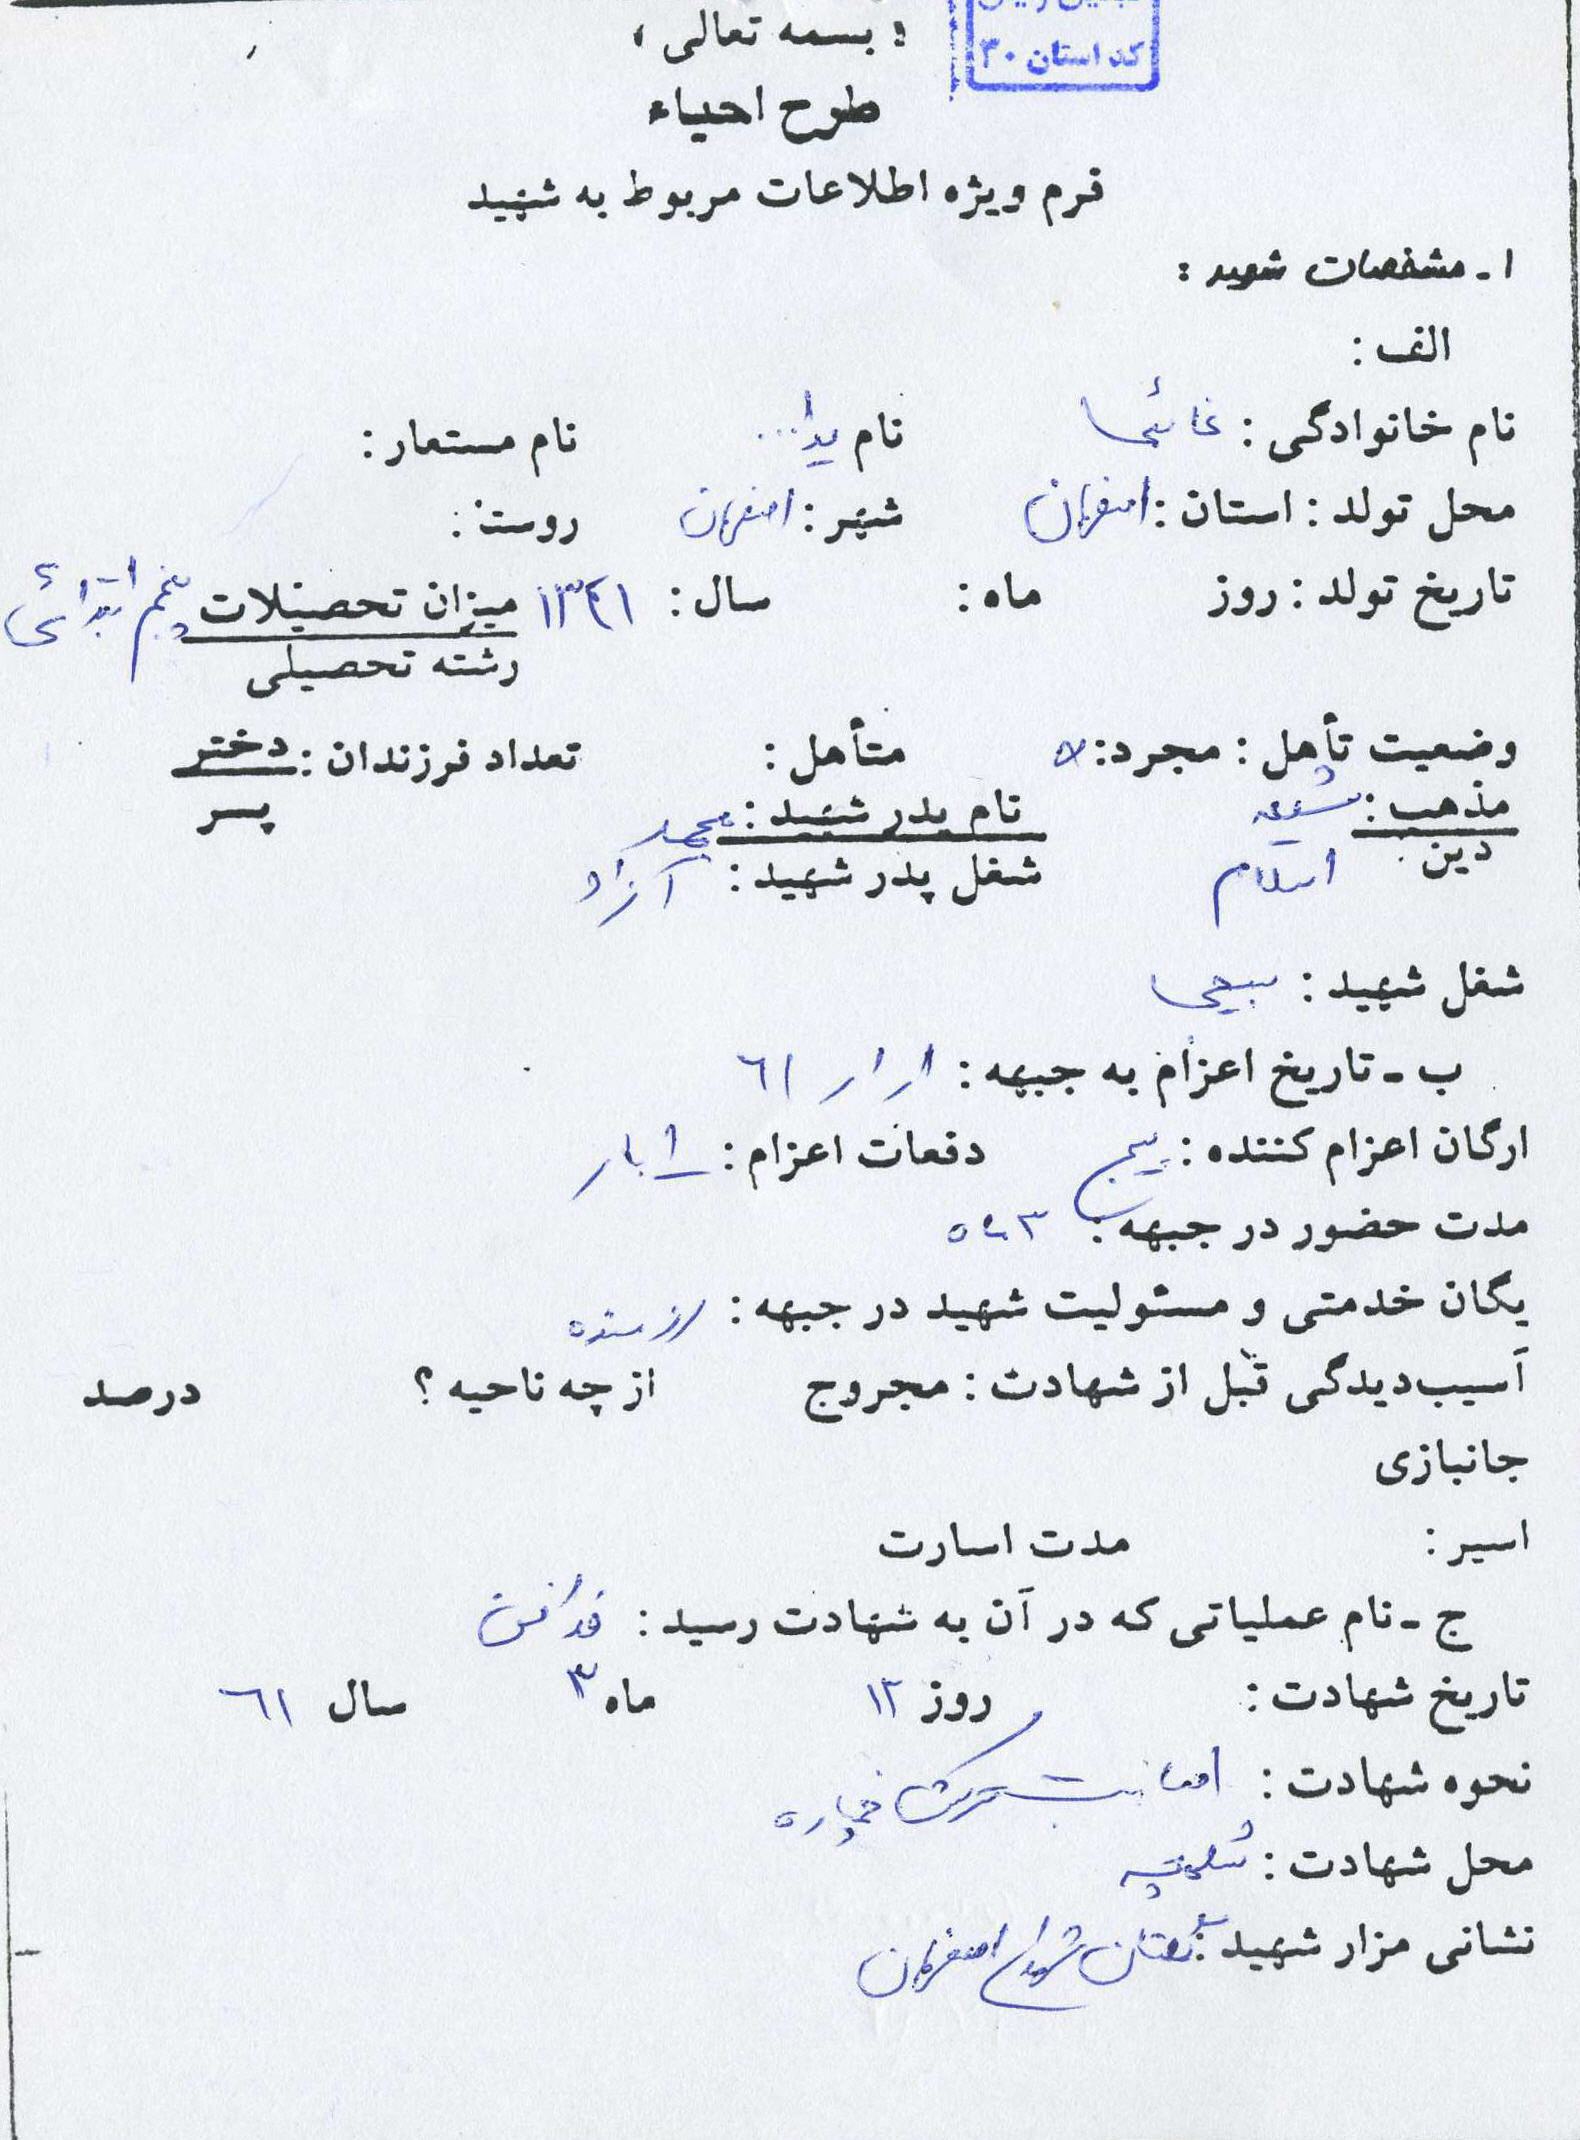 کد استان ۳۰
« بسمه تعالی »
طرح احیاء
فرم ویژه اطلاعات مربوط به شهید
۱ـ مشخصات شهید :
الف :
نام خانوادگی : نام یدا... نام مستعار :
محل تولد : استان : اصفهان شهر : اصفهان روستا :
تاریخ تولد : روز ماه : سال : ۱۳۴۱ میزان تحصیلات پنجم ابتدائی
رشته تحصیلی
وضعیت تأهل : مجرد : متأهل : تعداد فرزندان : دختر
پسر
مذهب : شیعه نام پدر شهید : محمد
دین : اسلام شغل پدر شهید : آزاد
شغل شهید : بسیجی
ب ـ تاریخ اعزام به جبهه : ۱ر۱ر ۶۱
ارگان اعزام کننده : بسیج دفعات اعزام : بار
مدت حضور در جبهه : ۳ ماه
یگان خدمتی و مسئولیت شهید در جبهه : رزمنده
آسیب‌دیدگی قبل از شهادت : مجروح از چه ناحیه ؟ درصد
جانبازی
اسیر : مدت اسارت
ج ـ نام عملیاتی که در آن به شهادت رسید :
تاریخ شهادت : روز ۱۲ ماه ۳ سال ۶۱
نحوه شهادت : اصابت ترکش خمپاره
محل شهادت : شلمچه
نشانی مزار شهید : گلستان شهدای اصفهان